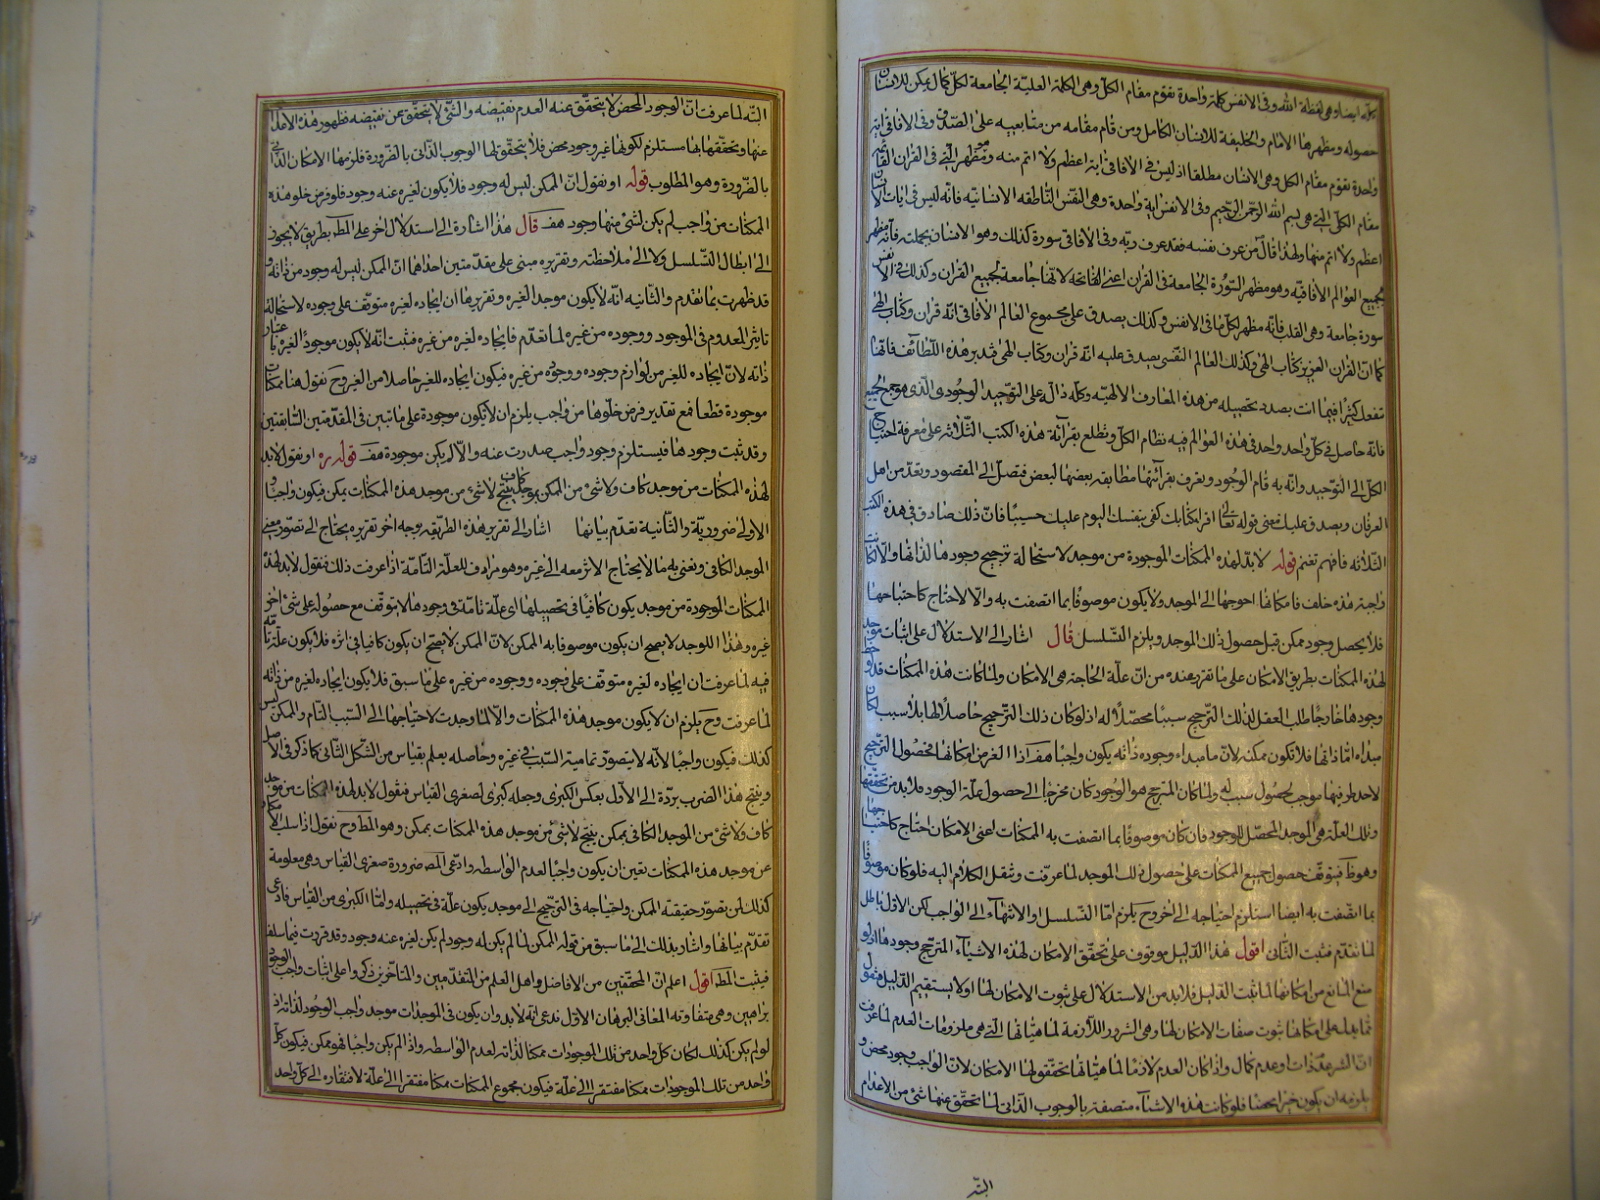 كلمة ايضا وهى لفظة الله وفى الانفس كلمة واحدة تقوم مقام الكل وهى الكلمة العلية الجامعة لكل كمال يمكن للانسان
حصوله ومظهرها الامام والخليفة للانسان الكامل ومن قام مقامه من متابعيه على الصدق وفى الافاق اية
واحدة تقوم مقام الكل وهى الانسان مطلقا اذ ليس فى الافاق اية اعظم ولا اتم منه ومظهر التى فى القران القائمة
مقام الكل التى هى بسم الله الرحمن الرحيم وفى الانفس اية واحدة وهى النفس الناطقه الانسانيه فانه ليس فى ايات الانفس
اعظم ولا اتم منها ولهذا قال من عرف نفسه فقد عرف ربه وفى الافاق سورة كذلك وهو الانسان بجملته فانه مظهر
لجميع العوالم الافاقيه وهو مظهر السورة الجامعة فى القران اعنى الفاتحه لانها جامعة لجميع القران وكذلك فى الانفس
سورة جامعة وهى القلب فانه مظهر لكل ما فى الانفس وكذلك يصدق على مجموع العالم الافاقى انه قران وكتاب الهى
كما ان القران العزيز كتاب الهى وكذلك العالم النفسى يصدق عليه انه قران وكتاب الهى فتدبر هذه اللطائف فانها
تفعل كثيرا فيما انت بصدد تحصيله من هذه المعارف الالهيه وكله دال على التوحيد الوجودى الذى هو جمع الجميع
فانه حاصل فى كل واحد واحد فى هذه العوالم فيه نظام الكل وتطلع بقرائة هذه الكتب الثلاثه على معرفة احتياج
الكل الى التوحيد وانه به قام الوجود وتعرف بقرائتها مطابقه بعضها لبعض فتصل الى المقصود وتعد من اهل
العرفان ويصدق عليك معنى قوله تعالى اقرا كتابك كفى بنفسك اليوم عليك حسيبا فان ذلك صادق فى هذه الكتب
الثلاثه فافهم تغنم قوله لابد لهذه الممكنات الموجودة من موجد لاستحالة ترجيح وجودها لذاتها والا لكانت
واجبة هذه خلف فامكانها احوجها الى الموجد ولا يكون موصوفا بما اتصفت به والا لاحتاج كاحتياجها
فلا يحصل وجود ممكن قبل حصول ذلك الموجد ويلزم التسلسل قال اشار الى الاستدلال على اثبات موجد
لهذه الممكنات بطريق الامكان على ما تقرر عنده من ان علة الحاجة هى الامكان ولما كانت هذه الممكنات قد
وجودها خارجا طلب العقل لذلك الترجيح سببا محصلا له اذ لو كان ذلك الترجيح حاصلا لها بلا سبب لكان
مبداء اما ذاتها فلا تكون ممكنه لان ما مبداء وجوده ذاته يكون واجبا هف اذ الفرض امكانها فحصول الترجيح
لاحد طرفيها موجب لحصول سبب له ولما كان المترجح هو الوجود كان محوجا الى حصول علة الوجود فلابد من تحققها
وتلك العلة هى الموجد المحصل للوجود فان كان موصوفا بما اتصفت به الممكنات اعنى الامكان احتاج كاحتياجها
وهو ظ فيتوقف حصول جميع الممكنات على حصول ذلك الموجد لما عرفت وننقل الكلام اليه فلو كان موصوفا
بما اتصفت به ايضا استلزم احتياجه الى اخر وح يلزم اما التسلسل او الانتهاء الى الواجب لكن الاول باطل
لما تقدم فثبت الثانى اقول هذا الدليل موقوف على تحقق الامكان لهذه الاشياء المترجح وجودها اذ لو
منع المانع من امكانها لما ثبت الدليل فلابد من الاستدلال على ثبوت الامكان لها اولا ليستقيم الدليل فنقول
مما يدل على امكانها ثبوت صفات الامكان لها وهى الشرور اللازمة لماهياتها التى هى ملزومات العدم لما عرفت
ان الشر عدم ذات او عدم كمال واذا كان العدم لازما لماهياتها تحقق لها الامكان لان الواجب وجود محض و
يلزمه ان يكون خيرا محضا فلو كانت هذه الاشياء متصفة بالوجوب الذاتى لما تحقق عنها شئ من الاعدام
البته
البته لما عرفت ان الوجود المحض لا يتحقق عنه العدم نقيضه والشئ لا يتحقق عن نقيضه فظهور هذه الاعدام
عنها وتحققها بها مستلزم لكونها غير وجود محض فلا يتحقق لها الوجوب الذاتى بالضرورة فلزمها الامكان الذاتى
بالضرورة وهو المطلوب قوله او نقول ان الممكن ليس له وجود فلا يكون لغيره عنه وجود فلو فرض خلو هذه
الممكنات من واجب لم يكن لشئ منها وجود هف قال هذا اشارة الى استدلال اخر على المط بطريق لا يحوج
الى ابطال التسلسل ولا الى ملاحظته وتقريره مبنى على مقدمتين احداهما ان الممكن ليس له وجود من ذاته و
قد ظهرت بما تقدم والثانيه انه لا يكون موجد الغيره وتقريرها ان ايجاده لغيره متوقف على وجوده لاستحالة
تاثير المعدوم فى الموجود ووجوده من غيره لما تقدم فايجاده لغيره من غيره فثبت انه لا يكون موجدا لغيره باعتبار
ذاته لان ايجاده للغير من لوازم وجوده ووجوده من غيره فيكون ايجاده للغير حاصلا من الغير وح نقول هنا ممكنات
موجودة قطعا فمع تقدير فرض خلوها من واجب يلزم ان لا يكون موجودة على ما تبين فى المقدمتين السابقتين
وقد ثبت وجودها فيستلزم وجود واجب صدرت عنه والا لم يكن موجودة هف قوله ره او نقول لابد
لهذه الممكنات من موجد كاف ولا شئ من الممكن بموجد كاف ينتج لا شئ من موجد هذه الممكنات بممكن فيكون واجبا و
الاولى ضرورية والثانية تقدم بيانها اشار الى تقرير هذه الطريقه بوجه اخر تقريره يحتاج الى تصور معنى
الموجد الكافى ونعنى به ما لا يحتاج الاثر معه الى غيره وهو مرادف للعلة التامة اذا عرفت ذلك فنقول لابد لهذه
الممكنات الموجودة من موجد يكون كافيا فى تحصيلها اى علة تامة فى وجودها لا يتوقف مع حصوله على شئ اخر
غيره وهذا الموجد لا يصح ان يكون موصوفا به الممكن لان الممكن لا يصح ان يكون كافيا فى اثره فلا يكون علة تامة
فيه لما عرفت ان ايجاده لغيره متوقف على وجوده ووجوده من غيره على ما سبق فلا يكون ايجاده لغيره من ذاته
لما عرفت وح يلزم ان لا يكون موجد هذه الممكنات والا لما وجدت لاحتياجها الى السبب التام والممكن ليس
كذلك فيكون واجبا لانه لا يتصور تمامية السبب فى غيره وحاصله يعلم بقياس من الشكل الثانى كما ذكر فى الاصل
وينتج هذا الضرب برده الى الاول بعكس الكبرى وجعله كبرى لصغرى القياس فنقول لابد لهذه الممكنات من موجد
كاف ولا شئ من الموجد الكافى بممكن ينتج لا شئ من موجد هذه الممكنات بممكن وهو المط وح نقول اذا سلب الامكان
عن موجد هذه الممكنات تعين ان يكون واجبا لعدم الواسطه وادعى المص ضرورة صغرى القياس وهى معلومة
كذلك لمن تصور حقيقته الممكن واحتياجه فى الترجيح الى موجد يكون علة فى تحصيله واما الكبرى من القياس فادعى
تقدم بيانها واشار بذلك الى ما سبق من قوله الممكن لما لم يكن له وجود لم يكن لغيره عنه وجود وقد قررت فيما سلف
فيثبت المط اقول اعلم ان المحققين من الافاضل واهل العلم من المتقدمين والمتاخرين ذكروا على اثبات واجب الوجود
براهين وهى متفاوته المعانى البرهان الاول ندعى انه لابد وان يكون فى الموجدات موجد واجب الوجود لذاته اذ
لو لم يكن كذلك لكان كل واحد من تلك الموجودات ممكنا لذاته لعدم الواسطه واذا لم يكن واجبا فهو ممكن فيكون كل
واحد من تلك الموجودات ممكنا مفتقرا الى علة فيكون مجموع الممكنات ممكنا مفتقرا الى علة لافتقاره الى كل واحد